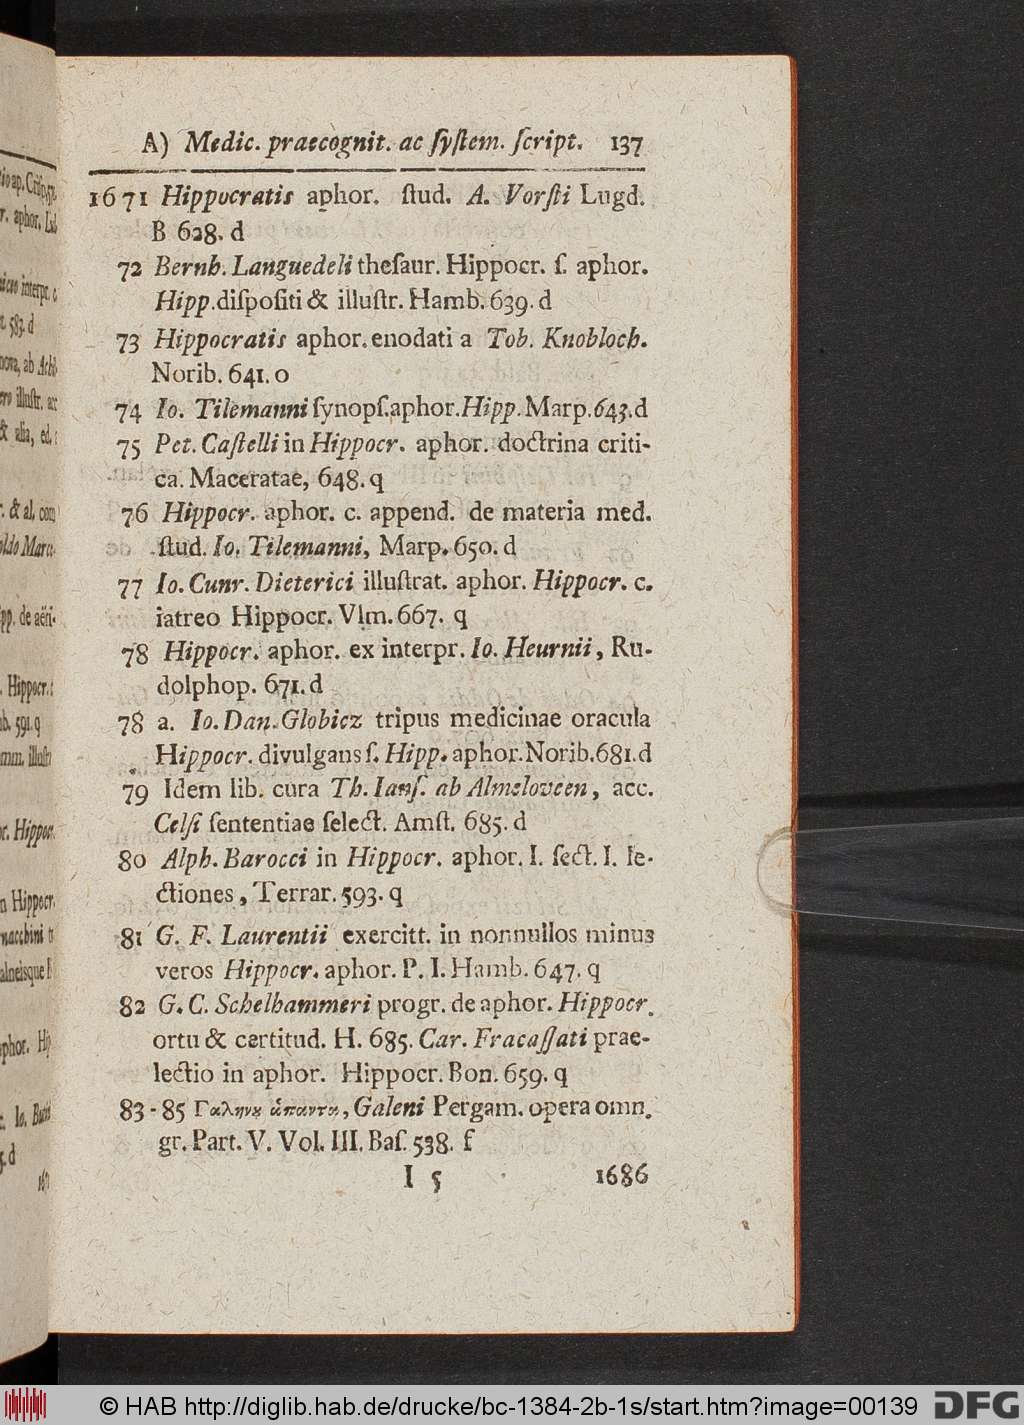 A) Medic. praecognit. ac ſyſtem. ſcript. 137
1671 Hippocratis aphor. ſtud. A. Vorſti Lugd.
B 628. d
72 Bernh. Languedeli theſaur. Hippocr. ſ. aphor.
Hipp. diſpoſiti & illuſtr. Hamb. 639. d
73 Hippocratis aphor. enodati a Tob. Knobloch.
Norib. 641. o
74 Io. Tilemanni ſynopſ. aphor. Hipp. Marp. 643. d
75 Pet. Caſtelli in Hippocr. aphor. doctrina criti-
ca. Maceratae, 648. q
76 Hippocr. aphor. c. append. de materia med.
ſtud. Io. Tilemanni, Marp. 650. d
77 Io. Cunr. Dieterici illuſtrat. aphor. Hippocr. c.
iatreo Hippocr. Vlm. 667. q
78 Hippocr. aphor. ex interpr. Io. Heurnii, Ru-
dolphop. 671. d
78 a. Io. Dan. Globicz tripus medicinae oracula
Hippocr. divulgans ſ. Hipp. aphor. Norib. 681. d
79 Idem lib. cura Th. Ianſ. ab Almeloveen, acc.
Celſi ſententiae ſelect. Amſt. 685. d
80 Alph. Barocci in Hippocr. aphor. I. ſect. I. le-
ctiones, Terrar. 593. q
81 G. F. Laurentii exercitt. in nonnullos minus
veros Hippocr. aphor. P. I. Hamb. 647. q
82 G. C. Schelhammeri progr. de aphor. Hippocr.
ortu & certitud. H. 685. Car. Fracaſſati prae-
lectio in aphor. Hippocr. Bon. 659. q
83-85 Γαληνȣ ἁπαντα, Galeni Pergam. opera omn.
gr. Part. V. Vol. III. Baſ. 538. f
I 5 1686
© HAB http://diglib.hab.de/drucke/bc-1384-2b-1s/start.htm?image=00139
DFG